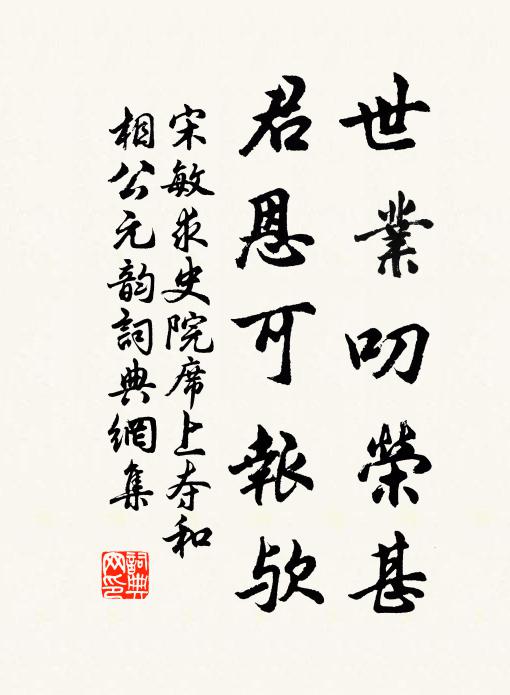 世業叨榮甚
君恩可報欤
宋敏求史院席上奉和
相公元韵詞典網集
詞典
网印